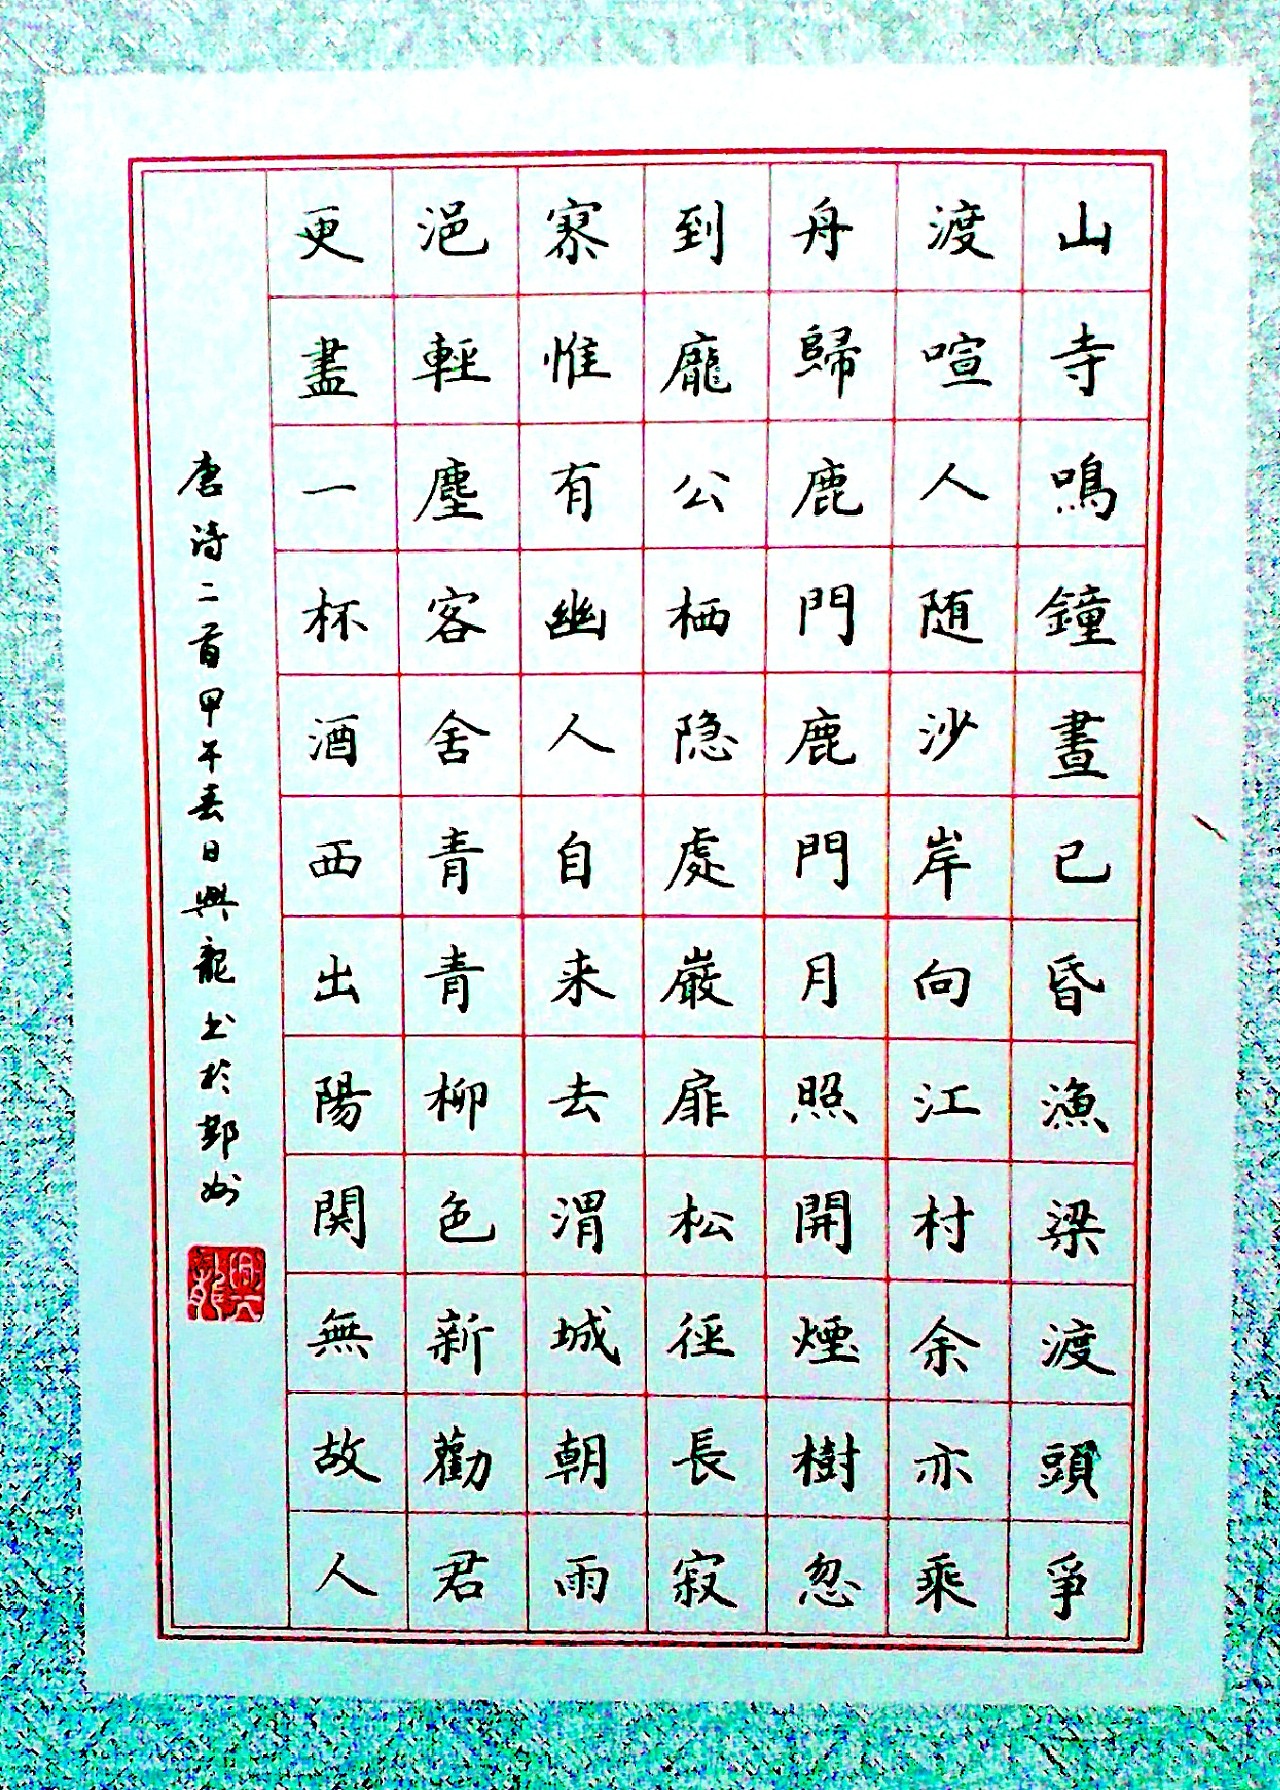 山寺鳴鐘晝已昏漁梁渡頭爭
渡喧人随沙岸向江村余亦乘
舟歸鹿門鹿門月照開煙樹忽
到龐公栖隐處巖扉松徑長寂
寮惟有幽人自来去渭城朝雨
浥輕塵客舍青青柳色新勸君
更盡一杯酒西出陽関無故人
唐詩二首甲午春日興龍书於鄭州
興龍